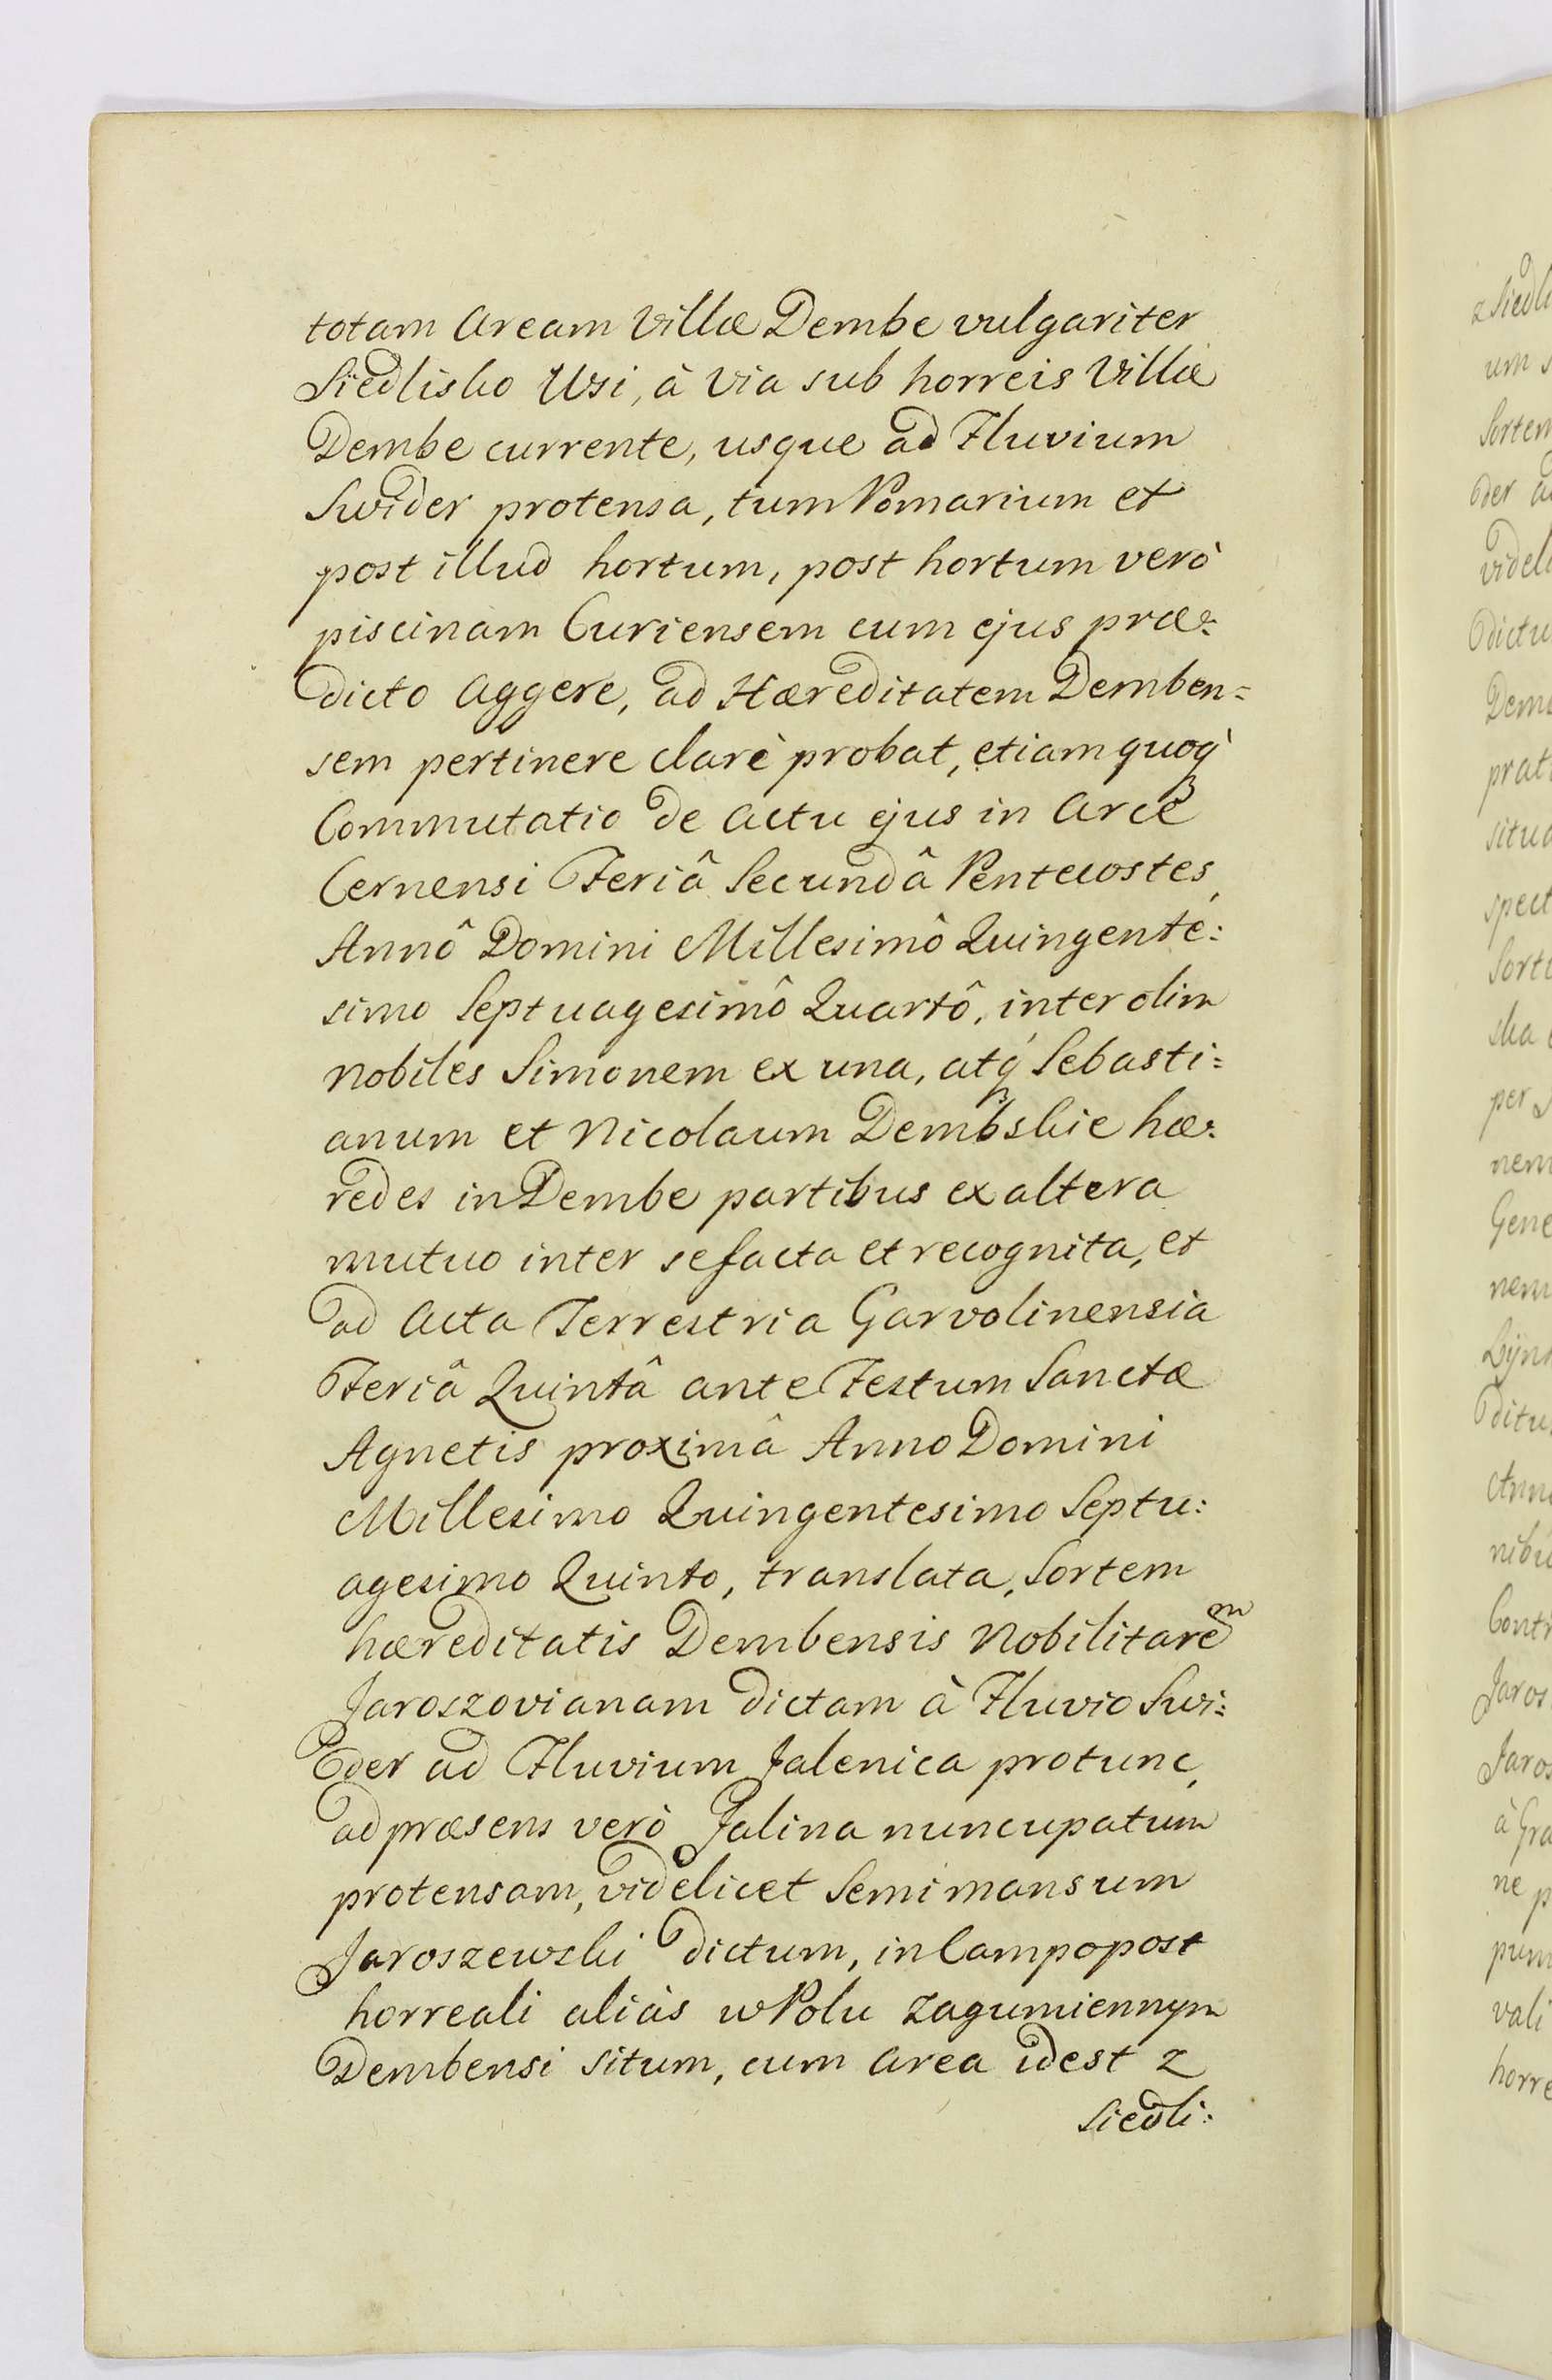 totam Aream Villæ Dembe vulgariter
Siedlisko Wsi, à Via sub horreis Villæ
Dembe currente, usque ad Fluvium
Swider protensa, tum Pomarium et
post illud hortum, post hortum verò
piscinam Curiensem cum ejus præ=
dicto Aggere, ad Hæreditatem Demben=
sem pertinere clarè probat, etiam quoq́
Commutatio de Actu ejus in Arce
Cernensi Feriâ Secundâ Pentecostes,
Annô Domini Millesimô Quingente:
simo Septuagesimô Quartô, inter olim
Nobiles Simonem ex una, atq́ Sebasti=
anum et Nicolaum Dembskie hæ=
redes in Dembe partibus ex altera
mutuo inter se facta et recognita, et
ad Acta Terrestria Garvolinensia
Feriâ Quintâ ante Festum Sanctæ
Agnetis proximâ Anno Domini
Millesimo Quingentesimo Septu:
agesimo Quinto, translata, Sortem
hæreditatis Dembensis Nobilitarem
Jaroszovianam dictam à Fluvio Swi=
der ad Fluvium Jalenica protunc,
ad præsens verò Jalina nuncupatum
protensam, videlicet Semimansum
Jaroszewski dictum, in Campo post
horreali aliàs w Polu Zagumiennym
Dembensi situm, cum Area idest z
Siedli:
z Siedli
um s
Sortem
der a
videl
dictu
Demb
prat
situa
spect
Sort
ska
per
nem
Gene
nem
ditu
Anno
nibu
Contr
Jaros
Jaros
à Gra
ne p
pum
vali
horre